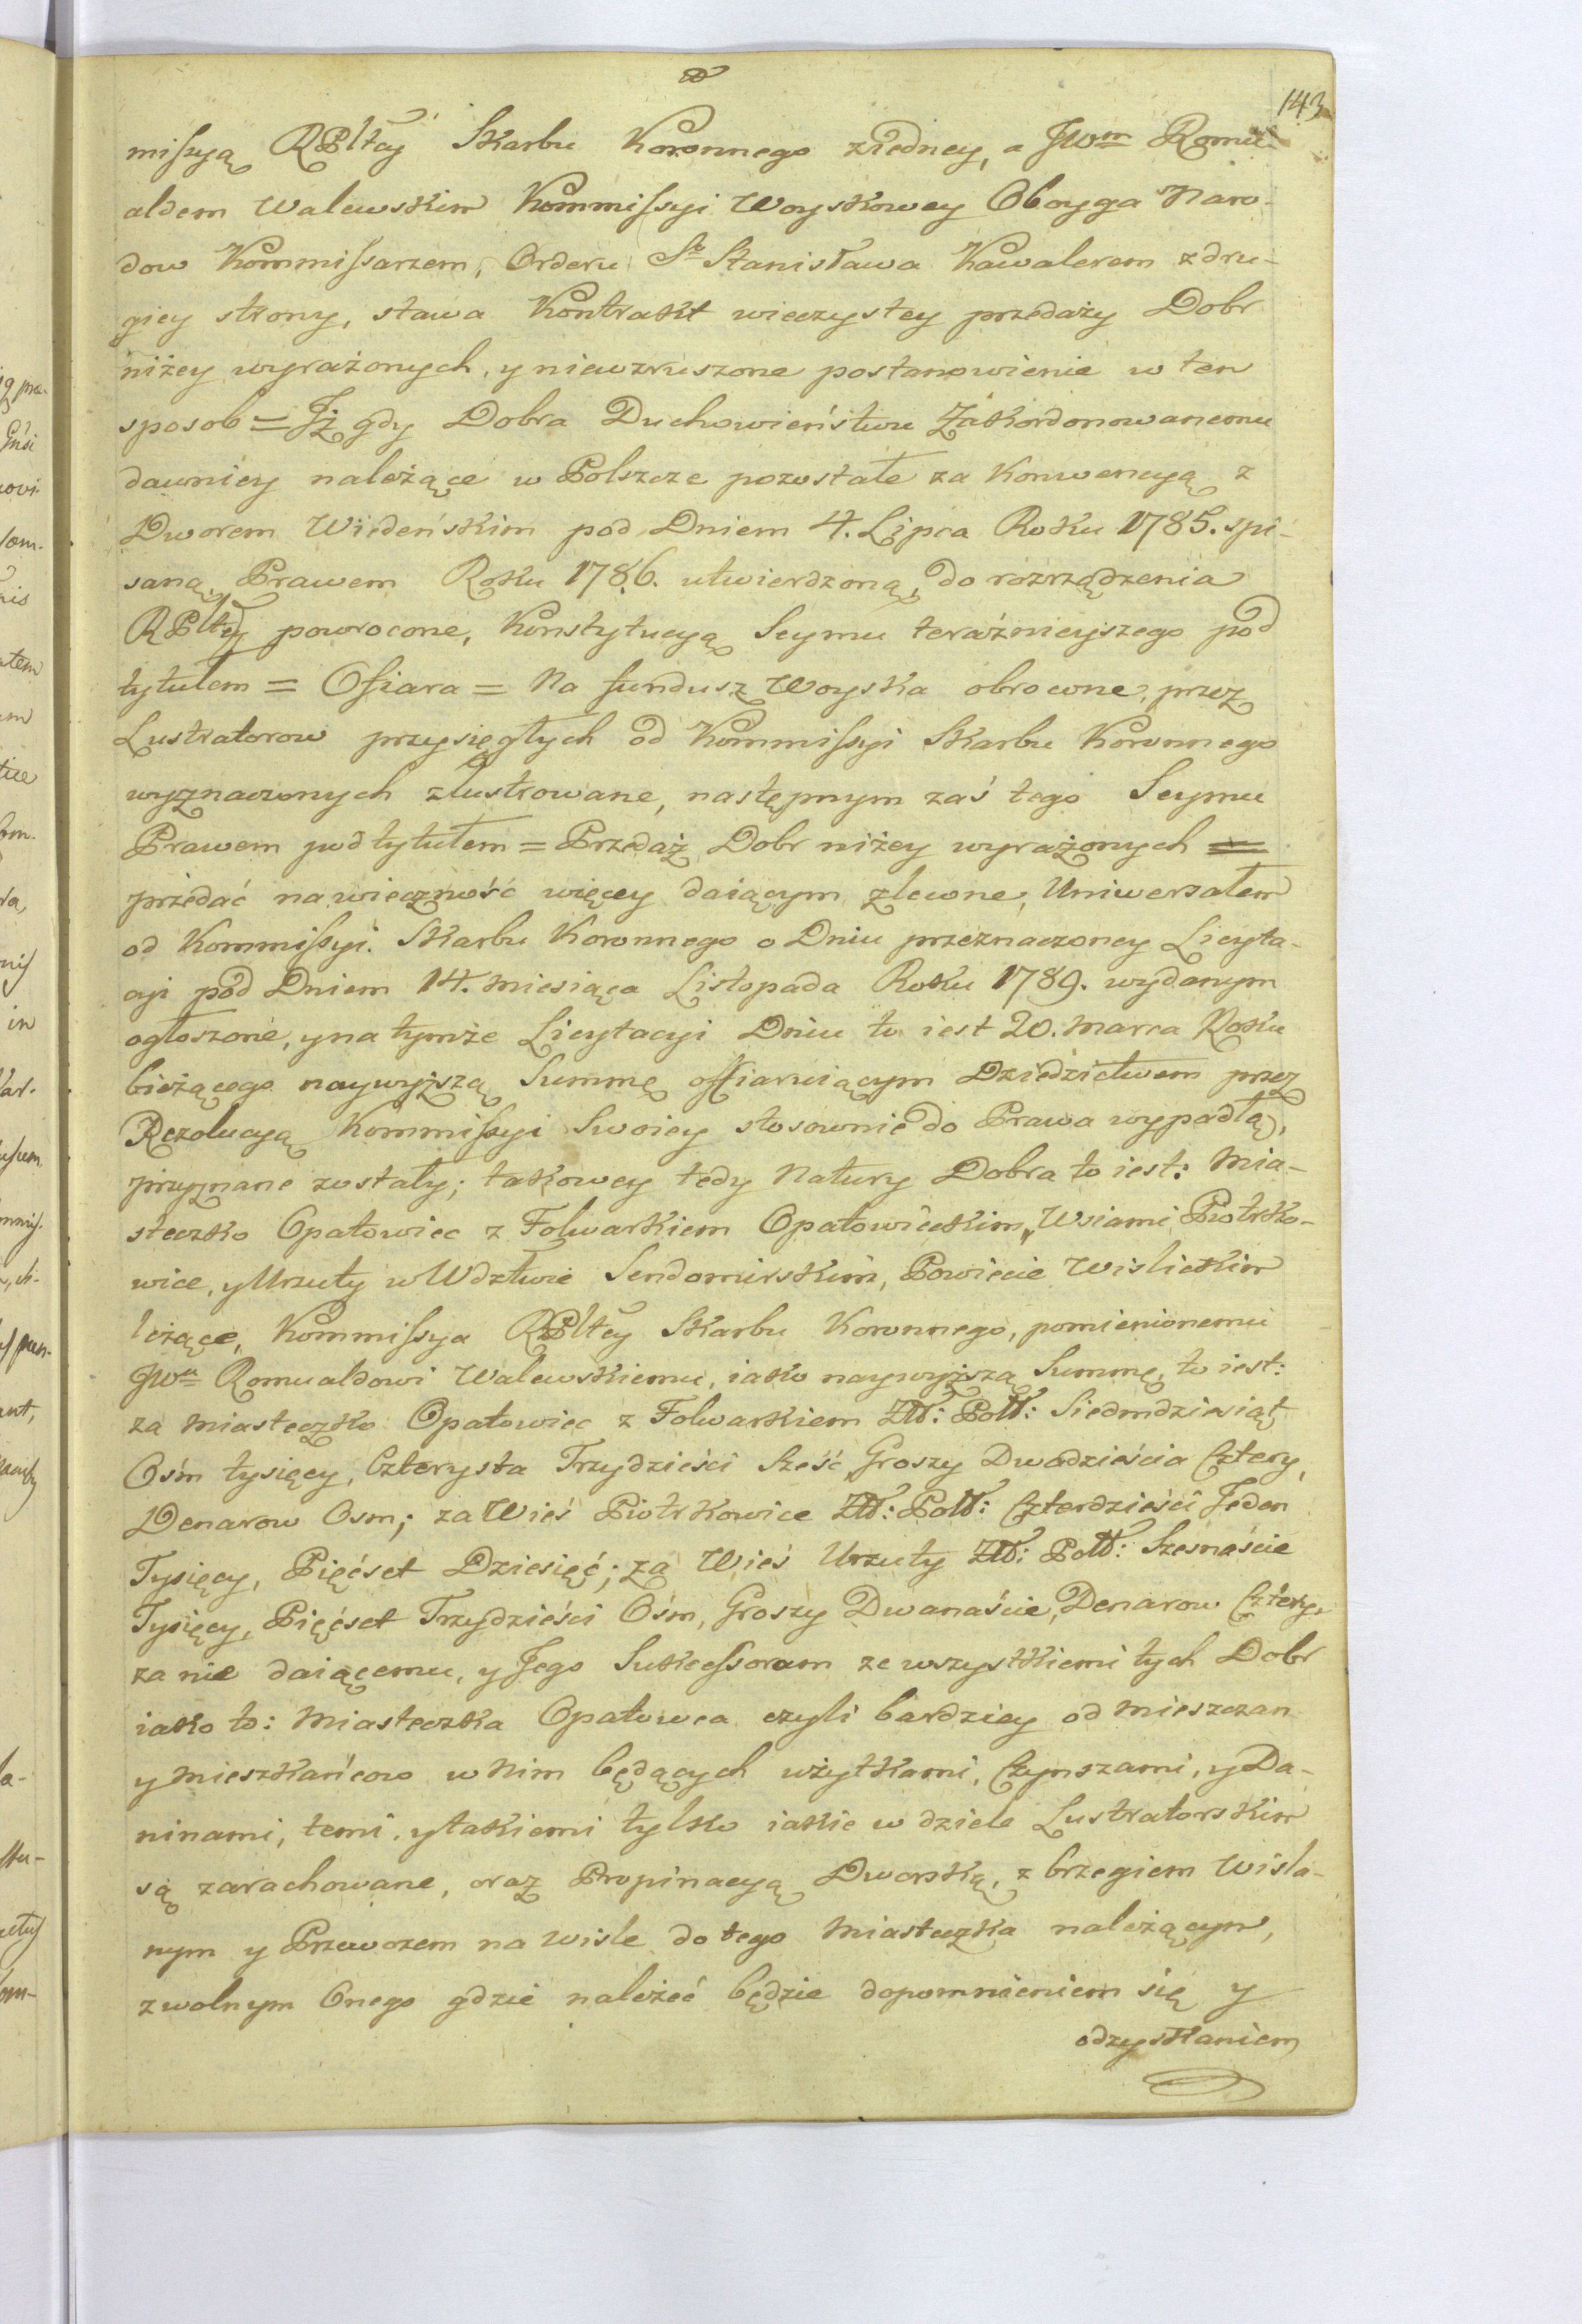 143
missyą RPltey Skarbu Koronnego ziedney, a JWm Romu-
aldem Walewskim Kommissyi Woyskowey Oboyga Naro-
dow Kommissarzem, Orderu St Stanisława Kawalerem z dru-
giey strony, stawa Kontrakt wieczystey przedaży Dobr
niżey wyrażonych, y niewzruszone postanowienie w ten
sposob = Jż gdy Dobra Duchowieństwu Zakordonowanemu
dawniey należące w Polszcze pozostałe za Konwencyą z
Dworem Wiedeńskim pod Dniem 4. Lipca Roku 1785. spi-
saną, Prawem Roku 1786. utwierdzoną, do rozrządzenia
RPltey powrocone, Konstytucyą Seymu teraźnieyszego pod
tytułem = Ofiara = Na fundusz Woyska obrocone, przez
Lustratorow przysięgłych od Kommissyi Skarbu Koronnego
wyznaczonych zlustrowane, następnym zaś tego Seymu
Prawem pod tytułem = Przedaż Dobr niżey wyrażonych =
przedać na wieczność więcey daiącym zlecone, Uniwersałem
od Kommissyi Skarbu Koronnego o Dniu przeznaczoney Licyta-
cyi pod Dniem 14. Miesiąca Listopada Roku 1789. wydanym
ogłoszone, y na tymże Licytacyi Dniu to iest 20. Marca Roku
bieżącego naywyższą Summę offiaruiącym Dziedzictwem przez
Rezolucyą Kommissyi Swoiey stosownie do Prawa wypadłą,
przyznane zostały; takowey tedy Natury Dobra to iest: Mia-
steczko Opatowiec z Folwarkiem Opatowieckim, Wsiami Piotrko-
wice, y Urzuty w Wdztwie Sendomirskim, Powiecie Wislickim
leżące, Kommissya RPltey Skarbu Koronnego, pomienionemu
JWu Romualdowi Walewskiemu, iako naywyższą Summę, to iest:
za Miasteczko Opatowiec z Folwarkiem Złł: Poll: Siedmdziesiąt
Ośm tysięcy, Czterysta Trzydzieści Sześć Groszy Dwadzieścia Cztery,
Denarow Osm; za Wieś Piotrkowice Złł: Poll: Czterdzieści Jeden
Tysięcy, Pięćset Dziesięć; za Wieś Urzuty Złł: Poll: Szesnaście
Tysięcy, Pięćset Trzydzieści Ośm, Groszy Dwanaście, Denarow Cztery,
za nie daiącemu, y Jego Sukcessorom ze wszystkiemi tych Dobr
iako to: Miasteczka Opatowca czyli bardziey od Mieszczan
y Mieszkańcow w Nim będących użytkami, Czynszami, y Da-
ninami, temi, y takiemi tylko iakie w dziele Lustratorskim
są zarachowane, oraz Propinacyą Dworską, z brzegiem Wisla-
nym y Przewozem na Wisle do tego Miasteczka należącym,
z wolnym Onego gdzie należeć będzie dopomnieniem się y
odzyskaniem